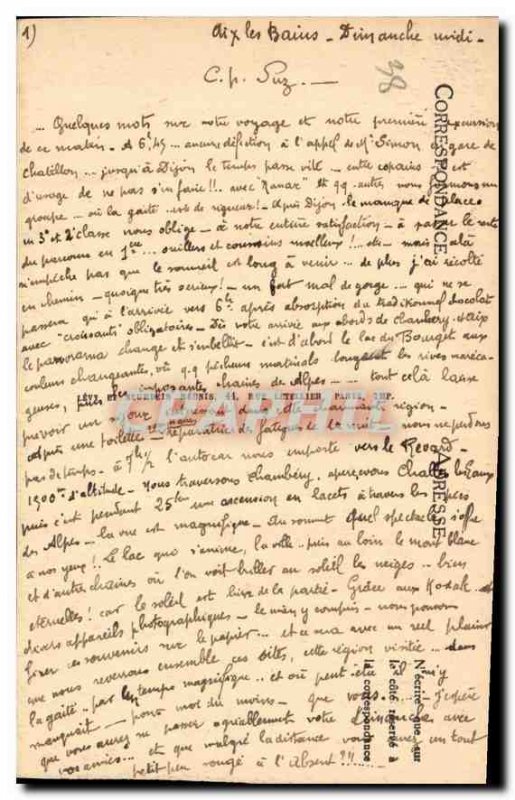 1)
Aix les Bains - Dimanche midi -
38
C.p. Suz. —
... Quelques mots sur notre voyage et notre première excursion
de ce matin - A 6h45 ... aucune défection à l'appel de Mr Simon gare de
Chatillon ... jusqu'à Dijon le temps passe vite - entre copains est
d'usage de ne pas s'en faire!! .. avec "Nanar" et qq. autres nous formons un
groupe - où la gaité est de rigueur! - Après Dijon le manque de places
en 3e et 2e classe nous oblige - à notre entière satisfaction - à faire le reste
du parcours en 1ère ... oreillers et coussins moelleux! ... etc - mais cela
n'empêche pas que le sommeil est long à venir ... de plus j'ai récolté
en chemin - quoique très sérieux! - un fort mal de gorge ... qui ne se
passera qu'à l'arrivée vers 6h après absorption du traditionnel chocolat
avec "croissants" obligatoires - Dès votre arrivée aux abords de Chambéry - Aix
le panorama change et s'embellit - c'est d'abord le lac du Bourget aux
couleurs changeantes, où qq pêcheurs matinals longeant les rives maréca-
geuses, puis les imposantes chaines de Alpes - ... tout celà laisse
prévoir un séjour dans cette charmante région -
après une toilette réparatrice des fatigues de la nuit nous ne perdons
pas de temps - à 7h1/2 l'autocar nous emporte vers le Revard -
1500m d'altitude - Nous traversons Chambéry, apercevons Challes les Eaux
puis c'est pendant 25km une ascension en lacets à travers les
des Alpes - la vue est magnifique - Au sommet quel spectacle s'offre
à nos yeux! Le lac qui s'anime, la ville .. puis au loin le mont blanc
et d'autres chaines où l'on voit briller au soleil les neiges ... bien
éternelles! car le soleil est bien de la partie - Grâce aux Kodak et
divers appareils photographiques - le mien y compris - nous pouvons
fixer ces souvenirs sur le papier ... et ce sera avec un réel plaisir
que nous reverrons ensemble ces sites, cette région visitée ... dans
la gaité - par les temps magnifique .. et où peut être il n'y
manquait - pour moi du moins - que vous ... J'espère
que vous aurez pu passer agréablement votre Dimanche avec
vos amies ... et que malgré la distance vous aurez un tout
petit peu songé à l'Absent?!! ...
CORRESPONDANCE
ADRESSE
N'écrire que sur
le côté réservé à
la correspondance
LÉVY ET NEURDEIN RÉUNIS, 44, RUE LETELLIER, PARIS, IMP.